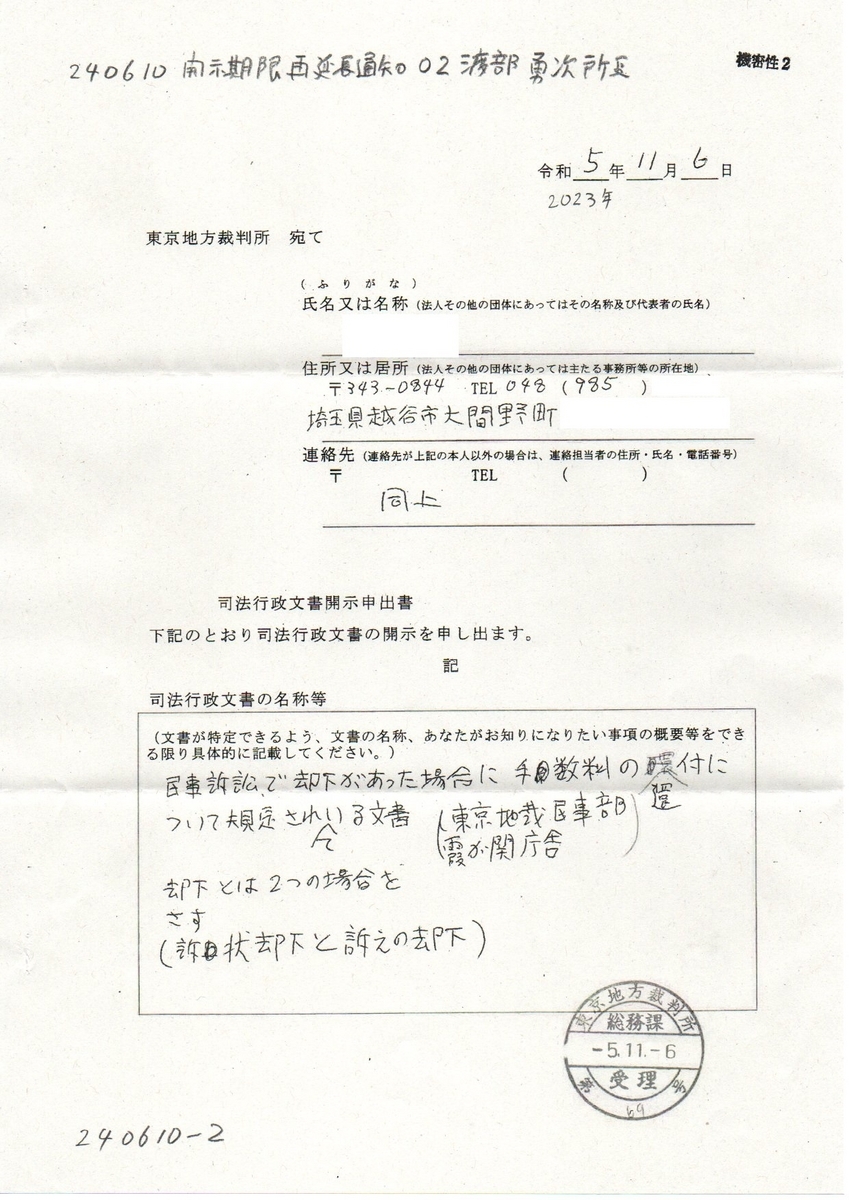 240610 開示期限再延長通知 02 渡部勇次所長
機密性2
令和 5 年 11 月 6 日
2023年
東京地方裁判所 宛て
(ふりがな)
氏名又は名称(法人その他の団体にあってはその名称及び代表者の氏名)
住所又は居所(法人その他の団体にあっては主たる事務所等の所在地)
〒343-0844 TEL 048 (985 )
埼玉県越谷市大間野町
連絡先(連絡先が上記の本人以外の場合は、連絡担当者の住所・氏名・電話番号)
〒 TEL ( )
同上
司法行政文書開示申出書
下記のとおり司法行政文書の開示を申し出ます。
記
司法行政文書の名称等
(文書が特定できるよう、文書の名称、あなたがお知りになりたい事項の概要等をでき
る限り具体的に記載してください。)
民事訴訟で却下があった場合に手数料の還付に
ついて規定されいる文書 (東京地裁民事部
て 霞が関庁舎)
却下とは2つの場合を
さす
(訴状却下と訴えの却下)
東京地方裁判所
総務課
-5.11.-6
受理
第 59 号
240610-2